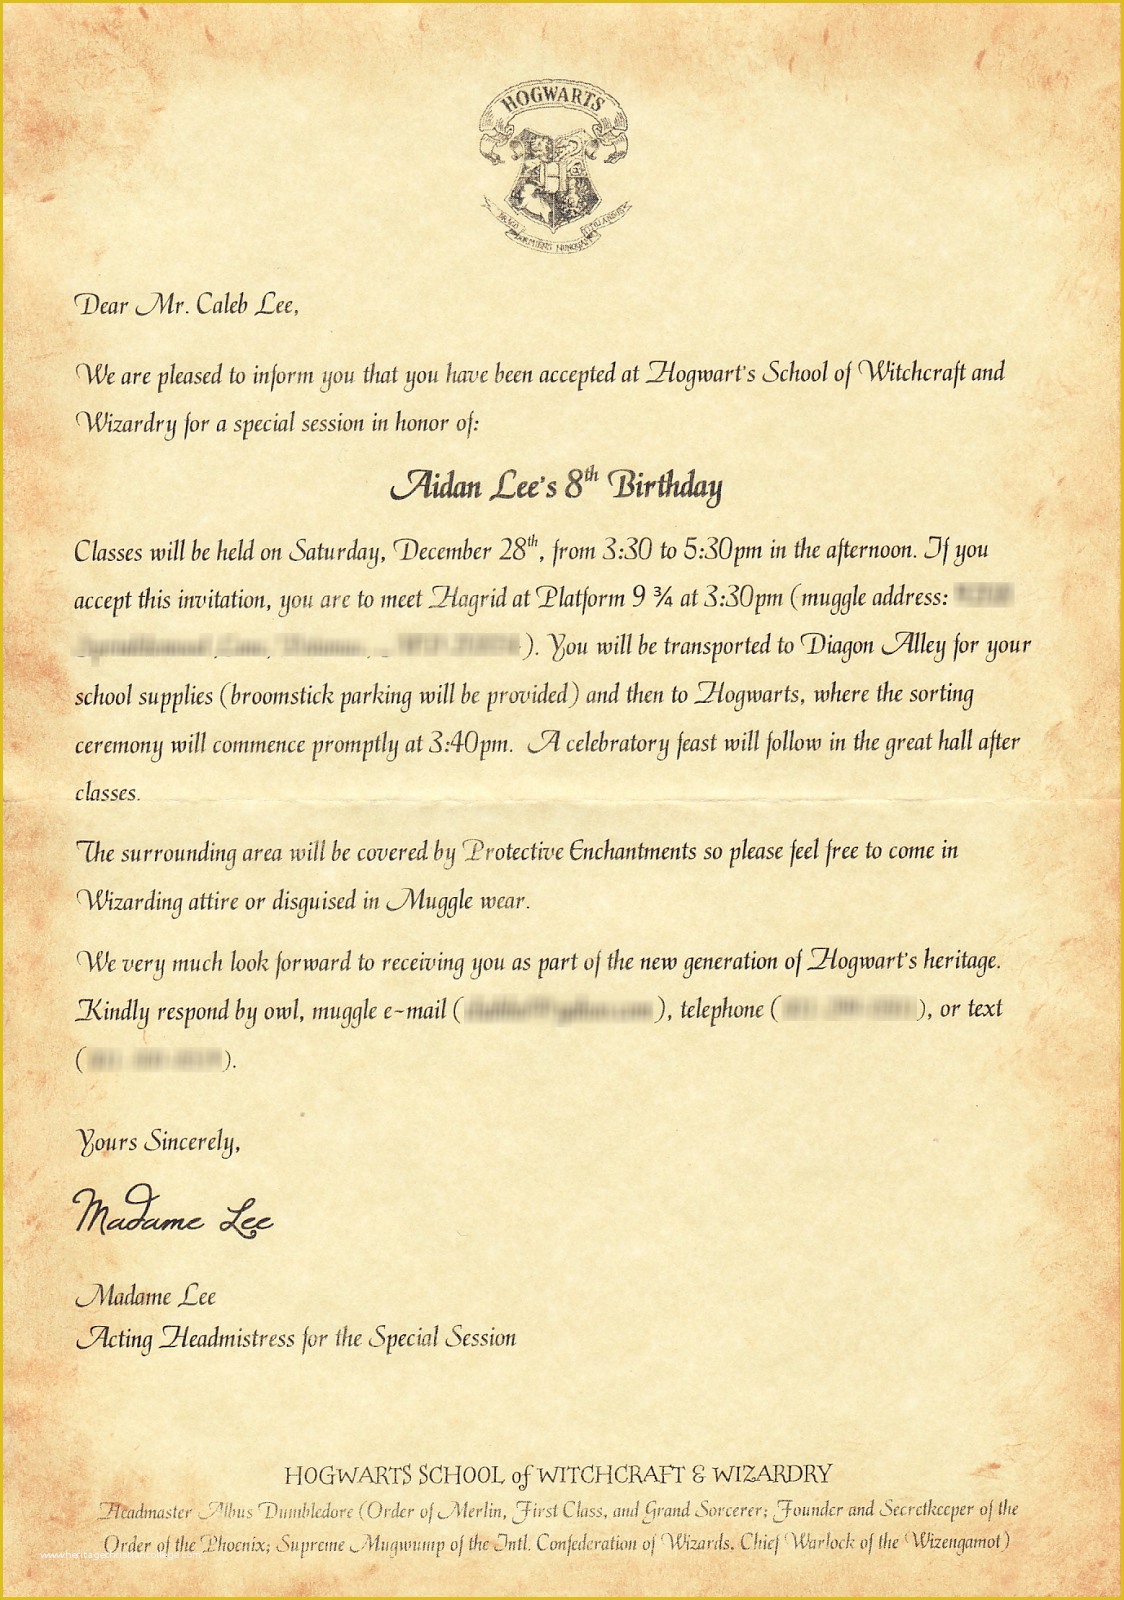 HOGWARTS
DRACO DORMIENS NUNQUAM TITILLANDUS
Dear Mr. Caleb Lee,
We are pleased to inform you that you have been accepted at Hogwart's School of Witchcraft and
Wizardry for a special session in honor of:
Aidan Lee's 8th Birthday
Classes will be held on Saturday, December 28th, from 3:30 to 5:30pm in the afternoon. If you
accept this invitation, you are to meet Hagrid at Platform 9 ¾ at 3:30pm (muggle address:
). You will be transported to Diagon Alley for your
school supplies (broomstick parking will be provided) and then to Hogwarts, where the sorting
ceremony will commence promptly at 3:40pm. A celebratory feast will follow in the great hall after
classes.
The surrounding area will be covered by Protective Enchantments so please feel free to come in
Wizarding attire or disguised in Muggle wear.
We very much look forward to receiving you as part of the new generation of Hogwart's heritage.
Kindly respond by owl, muggle e-mail ( ), telephone ( ), or text
( ).
Yours Sincerely,
Madame Lee
Madame Lee
Acting Headmistress for the Special Session
HOGWARTS SCHOOL of WITCHCRAFT & WIZARDRY
Headmaster Albus Dumbledore (Order of Merlin, First Class, and Grand Sorcerer; Founder and Secretkeeper of the
Order of the Phoenix; Supreme Mugwump of the Intl. Confederation of Wizards. Chief Warlock of the Wizengamot)
www.heritagechristiancollege.com